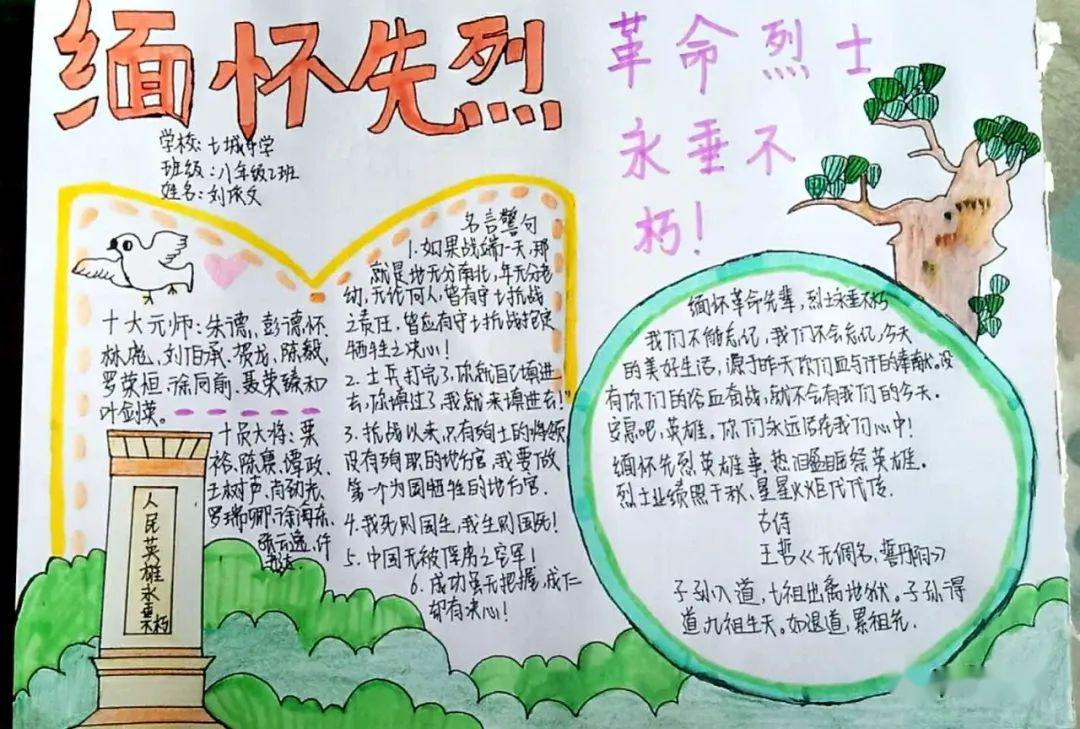 缅怀先烈
革命烈士
永垂不
朽!
学校:七城中学
班级:八年级2班
姓名:刘依文
十大元师:朱德,彭德怀
林彪、刘伯承、贺龙、陈毅、
罗荣桓、徐向前、聂荣臻和
叶剑英。
十员大将:粟
裕、陈赓、谭政、
王树声、肖劲光、
罗瑞卿、徐海东、
张云逸、许
人民英雄永垂不朽
名言警句
1.如果战端一天,那
就是地无分南北,年无分老
幼,无论何人,皆有守土抗战
之责任,皆应有守土抗战
牺牲之决心!
2.士兵打完了,你就自己填进
去,你填过了,我就来填进去!"
3.抗战以来,只有殉土的将领
没有殉职的地方官,我要做
第一个为国牺牲的地方官.
4.我死则国生,我生则国死!
5.中国无被俘虏之空军!
6.成功虽无把握,成仁
却有决心!
缅怀革命先辈,烈士永垂不朽
我们不能忘记,我们不会忘记,今天
的美好生活,源于昨天你们血与汗的奉献。没
有你们的浴血奋战,就不会有我们的今天。
安息吧,英雄。你们永远活在我们心中!
缅怀先烈英雄事,热泪盈眶祭英雄。
烈士业绩照千秋,星星火炬代代传.
古诗
王哲《无调名,誓丹阙》
子孙入道,七祖出离地狱。子孙得
道九祖生天。如退道,累祖先.